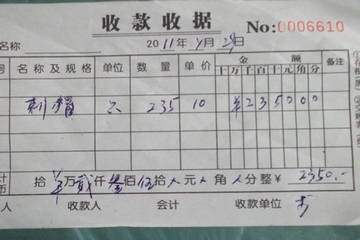 收款收据 No:0006610
名称 2011年9月29日
号 名称及规格 单位 数量 单价 金额 备注
十万千百十元角分
235 10 ¥235000
计 拾 万贰仟叁佰伍拾 元 角 分整 ¥ 2350.-
人 收款人 会计 收款单位